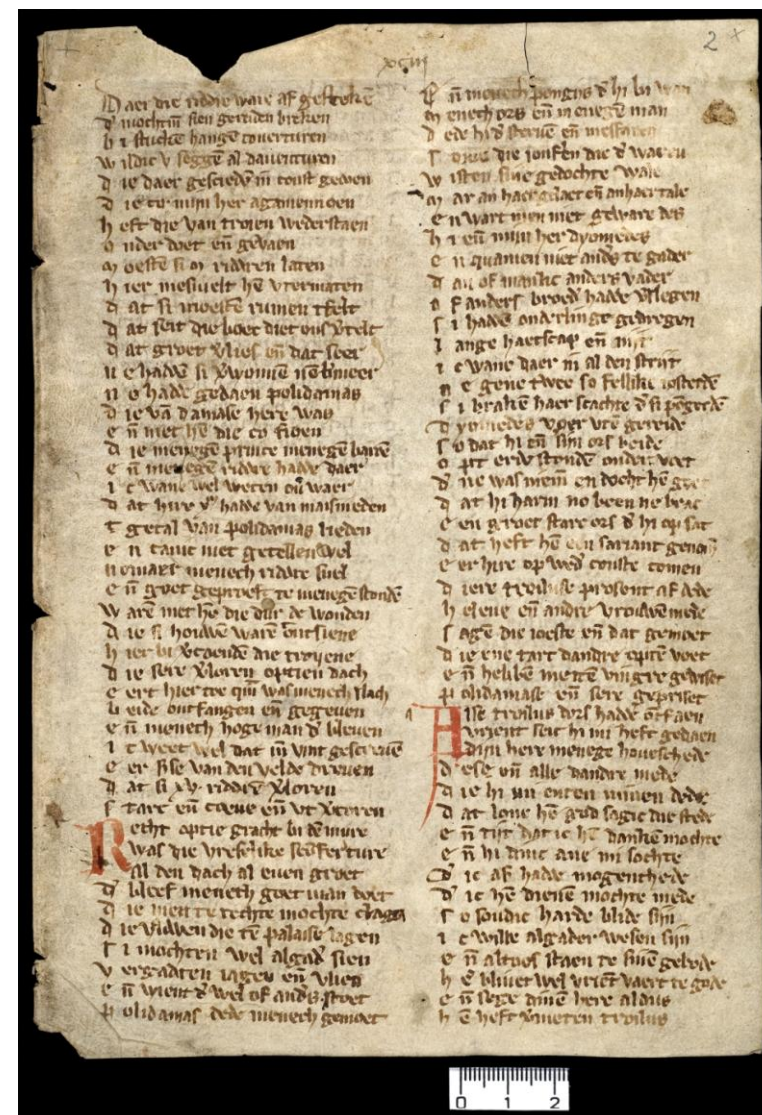 2 x
xciij
Daer die riddre ware af gesteken
d' mochtm̄ sien gereiden breken
bi stucken hangē couerturen
wildic v seggē al dauenturen
die daer gesciedē in const gewen
die co min her agamennoen
heft die van troien wederstaen
onder doet eñ geuaen
moestē si m riddren laten
hier mesuelt hē vtermaten
dat si moestē rumen tfelt
dat seit die boec diet ons v'telt
dat groet v'lies eñ dat seer
ne haddē si v'wonnē
ne hadde gedaen polidamas
die vā damase here was
eñ met hē die co
die menegē prince menegē baroen
eñ menegē riddre hadde daer
ic wane wel weten ouer waer
dat hire hadde van maisnieden
tgetal van polidamas lieden
en canic niet getellen wel
nomaer menech riddre snel
eñ goet geproeft te menegē stondē
warē met hē die dur de wonden
die si houwē warē ontsiene
hier bi v'coendē die troyene
die sere v'loren optien dach
eert hier toe quā was menech slach
beide ontfangen eñ gegeuen
eñ menech hoge man d' bleuen
ic weet wel dat m̄ vint gescreuē
eer sise van den velde dreuen
dat si xv riddrē v'loren
starc eñ coeue eñ vt v'coren
Recht optie gracht bi dē mure
was die vreselike
al den dach al euen groet
d' bleef menech goet man doet
die men te rechte mochte clagen
die vrowen die tē palaise lagen
si mochten wel algad' sien
vergadren iagen eñ vlien
eñ wient d' wel of and's stoet
polidamas dede menech gemoet
eñ menech pongijs d' hi bi wan
menech ors eñ menegē man
dede hi d' steruē eñ mesfaren
sone die jonfrē die d' waren
wisten sine gedochte wale
mar an haer gelaet eñ an haer tale
en wart men niet geware des
hi eñ min her dyomedes
en quamen niet and's te gader
dan of manlic anders vader
of anders broed' hadde v'slegen
si haddē onderlinge gedregen
lange haetscap eñ nijt
ic wane daer in al den strijt
ne gene twee so fellike iosterdē
si brakē haer scachte d' si pōgerdē
dyomedes voer vtē gereide
so dat hi eñ sijn ors beide
opt erde stondē onder voet
d' ne was niemē en docht hē goet
dat hi harm no been ne brac
een groet starc ors d' hi op sat
dat heft hē een sariant genomē
eer hire op wed' conste comen
diere troiluse prosent af dede
helene eñ andre vrouwen mede
sagē die joeste eñ dat gemoet
die ene tart dandre optē voet
eñ hebbē mettē vingre gewiset
polidamase eñ sere gepriset
Alse troilus dors hadde ōtfaen
vrient seit hi mi heft gedaen
dijn here menege houeschede
dese eñ alle dandre mede
die hi mi enten minen dede
dat lone hē god sagic die stede
eñ tijt dat ic hē danken mochte
eñ hi dinc ane mi sochte
d' ic af hadde mogenthede
d' ic hē dienē mochte mede
so soudic harde blide sijn
ic wille algader wesen sijn
eñ altoos staen te sinē gebode
hē bliuet wel vrient vaert te gode
eñ sege dinē here aldus
hē heft v'meten troilus
0 1 2